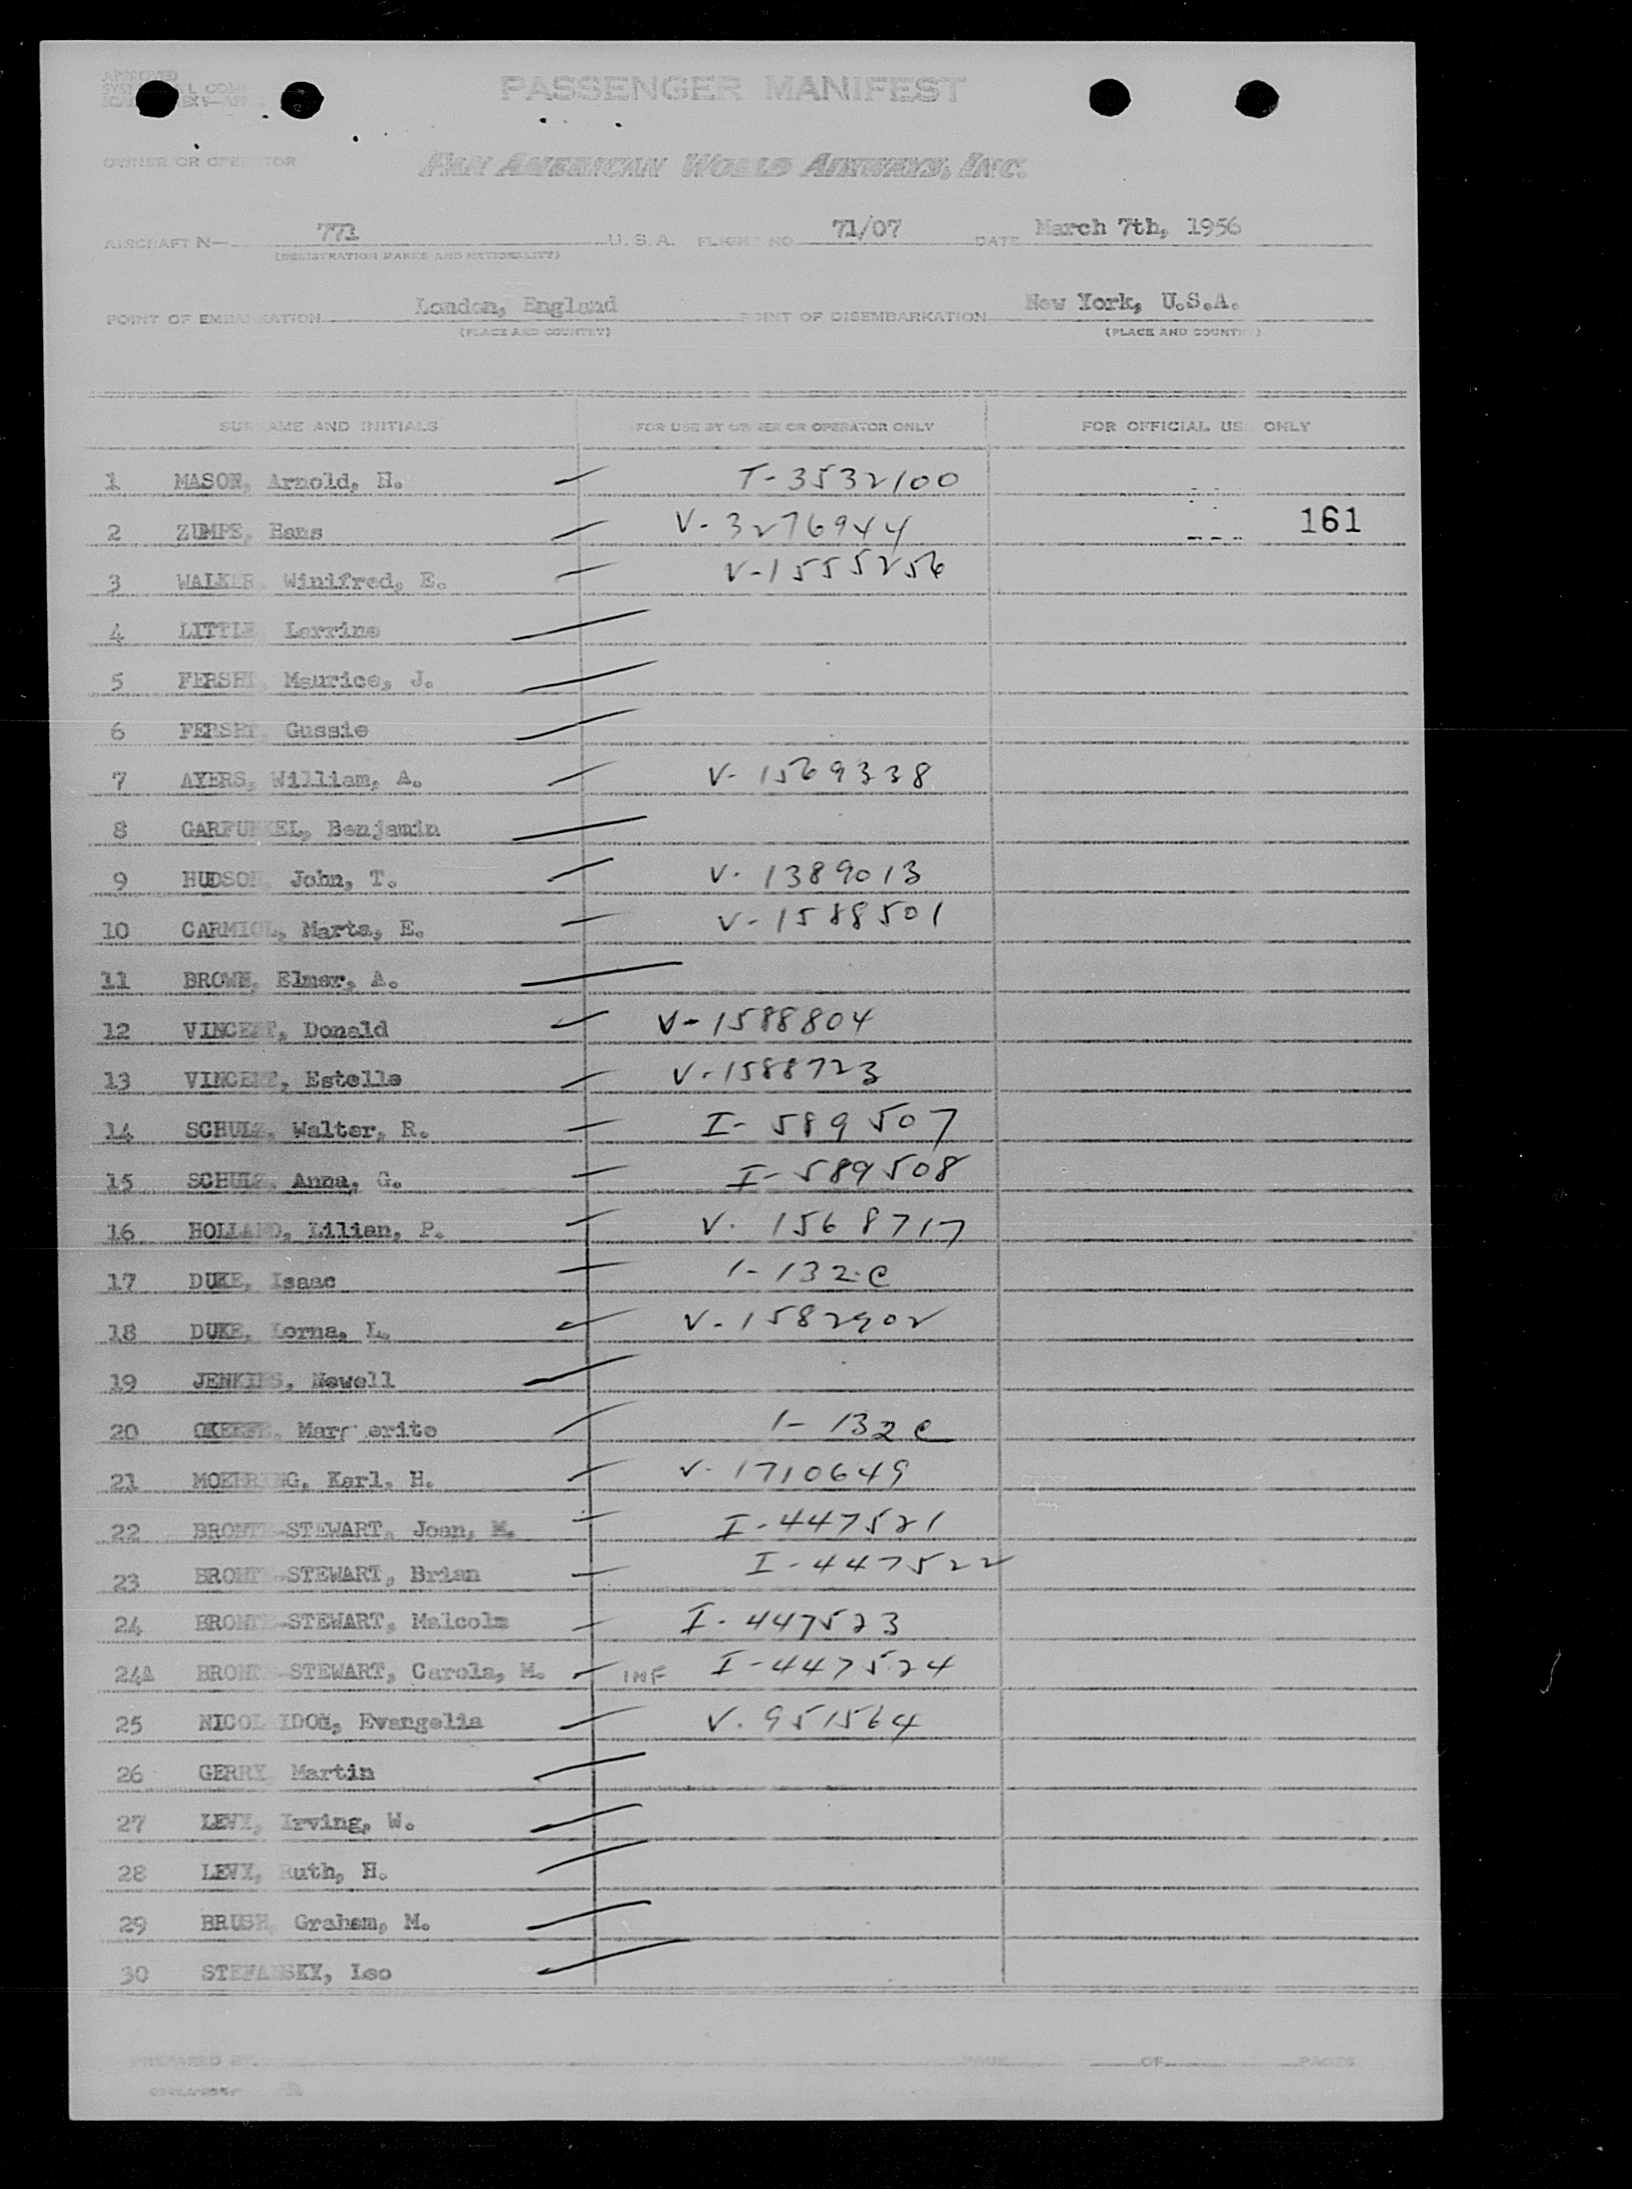 APPROVED
PASSENGER MANIFEST
OWNER OR OPERATOR PAN AMERICAN WORLD AIRWAYS, INC.
AIRCRAFT N— 771 U. S. A. FLIGHT NO. 71/07 DATE March 7th, 1956
(REGISTRATION MARKS AND NATIONALITY)
POINT OF EMBARKATION London, England POINT OF DISEMBARKATION New York, U.S.A.
(PLACE AND COUNTRY) (PLACE AND COUNTRY)
SURNAME AND INITIALS FOR USE BY OWNER OR OPERATOR ONLY FOR OFFICIAL USE ONLY
1 MASON, Arnold, H. T-3532100
2 ZUMPE, Hans V-3276944 161
3 WALKER, Winifred, E. V-1555256
4 LITTLE, Lorrine
5 FERSHT, Maurice, J.
6 FERSHT, Gussie
7 AYERS, William, A. V-1569338
8 GARFUNKEL, Benjamin
9 HUDSON, John, T. V-1389013
10 CARMIOL, Marta, E. V-1588501
11 BROWN, Elmer, A.
12 VINCENT, Donald V-1588804
13 VINCENT, Estelle V-1588723
14 SCHULZ, Walter, R. I-589507
15 SCHULZ, Anna, G. I-589508
16 HOLLAND, Lilian, P. V-1568717
17 DUKE, Isaac 1-132 C
18 DUKE, Lorna, L. V-1582902
19 JENKINS, Newell
20 OKEEFE, Marguerite 1-132 C
21 MOEHRING, Karl, H. V-1710649
22 BRONTE-STEWART, Joan, M. I-447521
23 BRONTE-STEWART, Brian I-447522
24 BRONTE-STEWART, Malcolm I-447523
24A BRONTE-STEWART, Carola, M. INF I-447524
25 NICOLAIDOU, Evangelia V-951564
26 GERRY, Martin
27 LEVY, Irving, W.
28 LEVY, Ruth, H.
29 BRUSH, Graham, M.
30 STEFANSKY, Leo
PREPARED BY PAGE OF PAGES